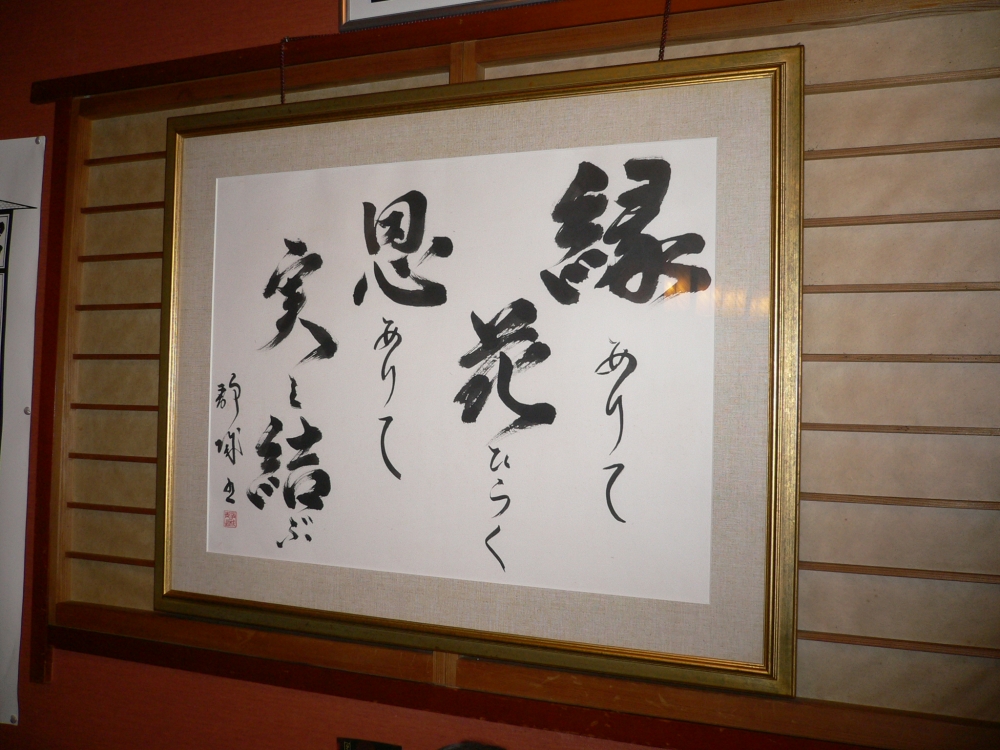 縁ありて
花ひらく
恩ありて
実を結ぶ